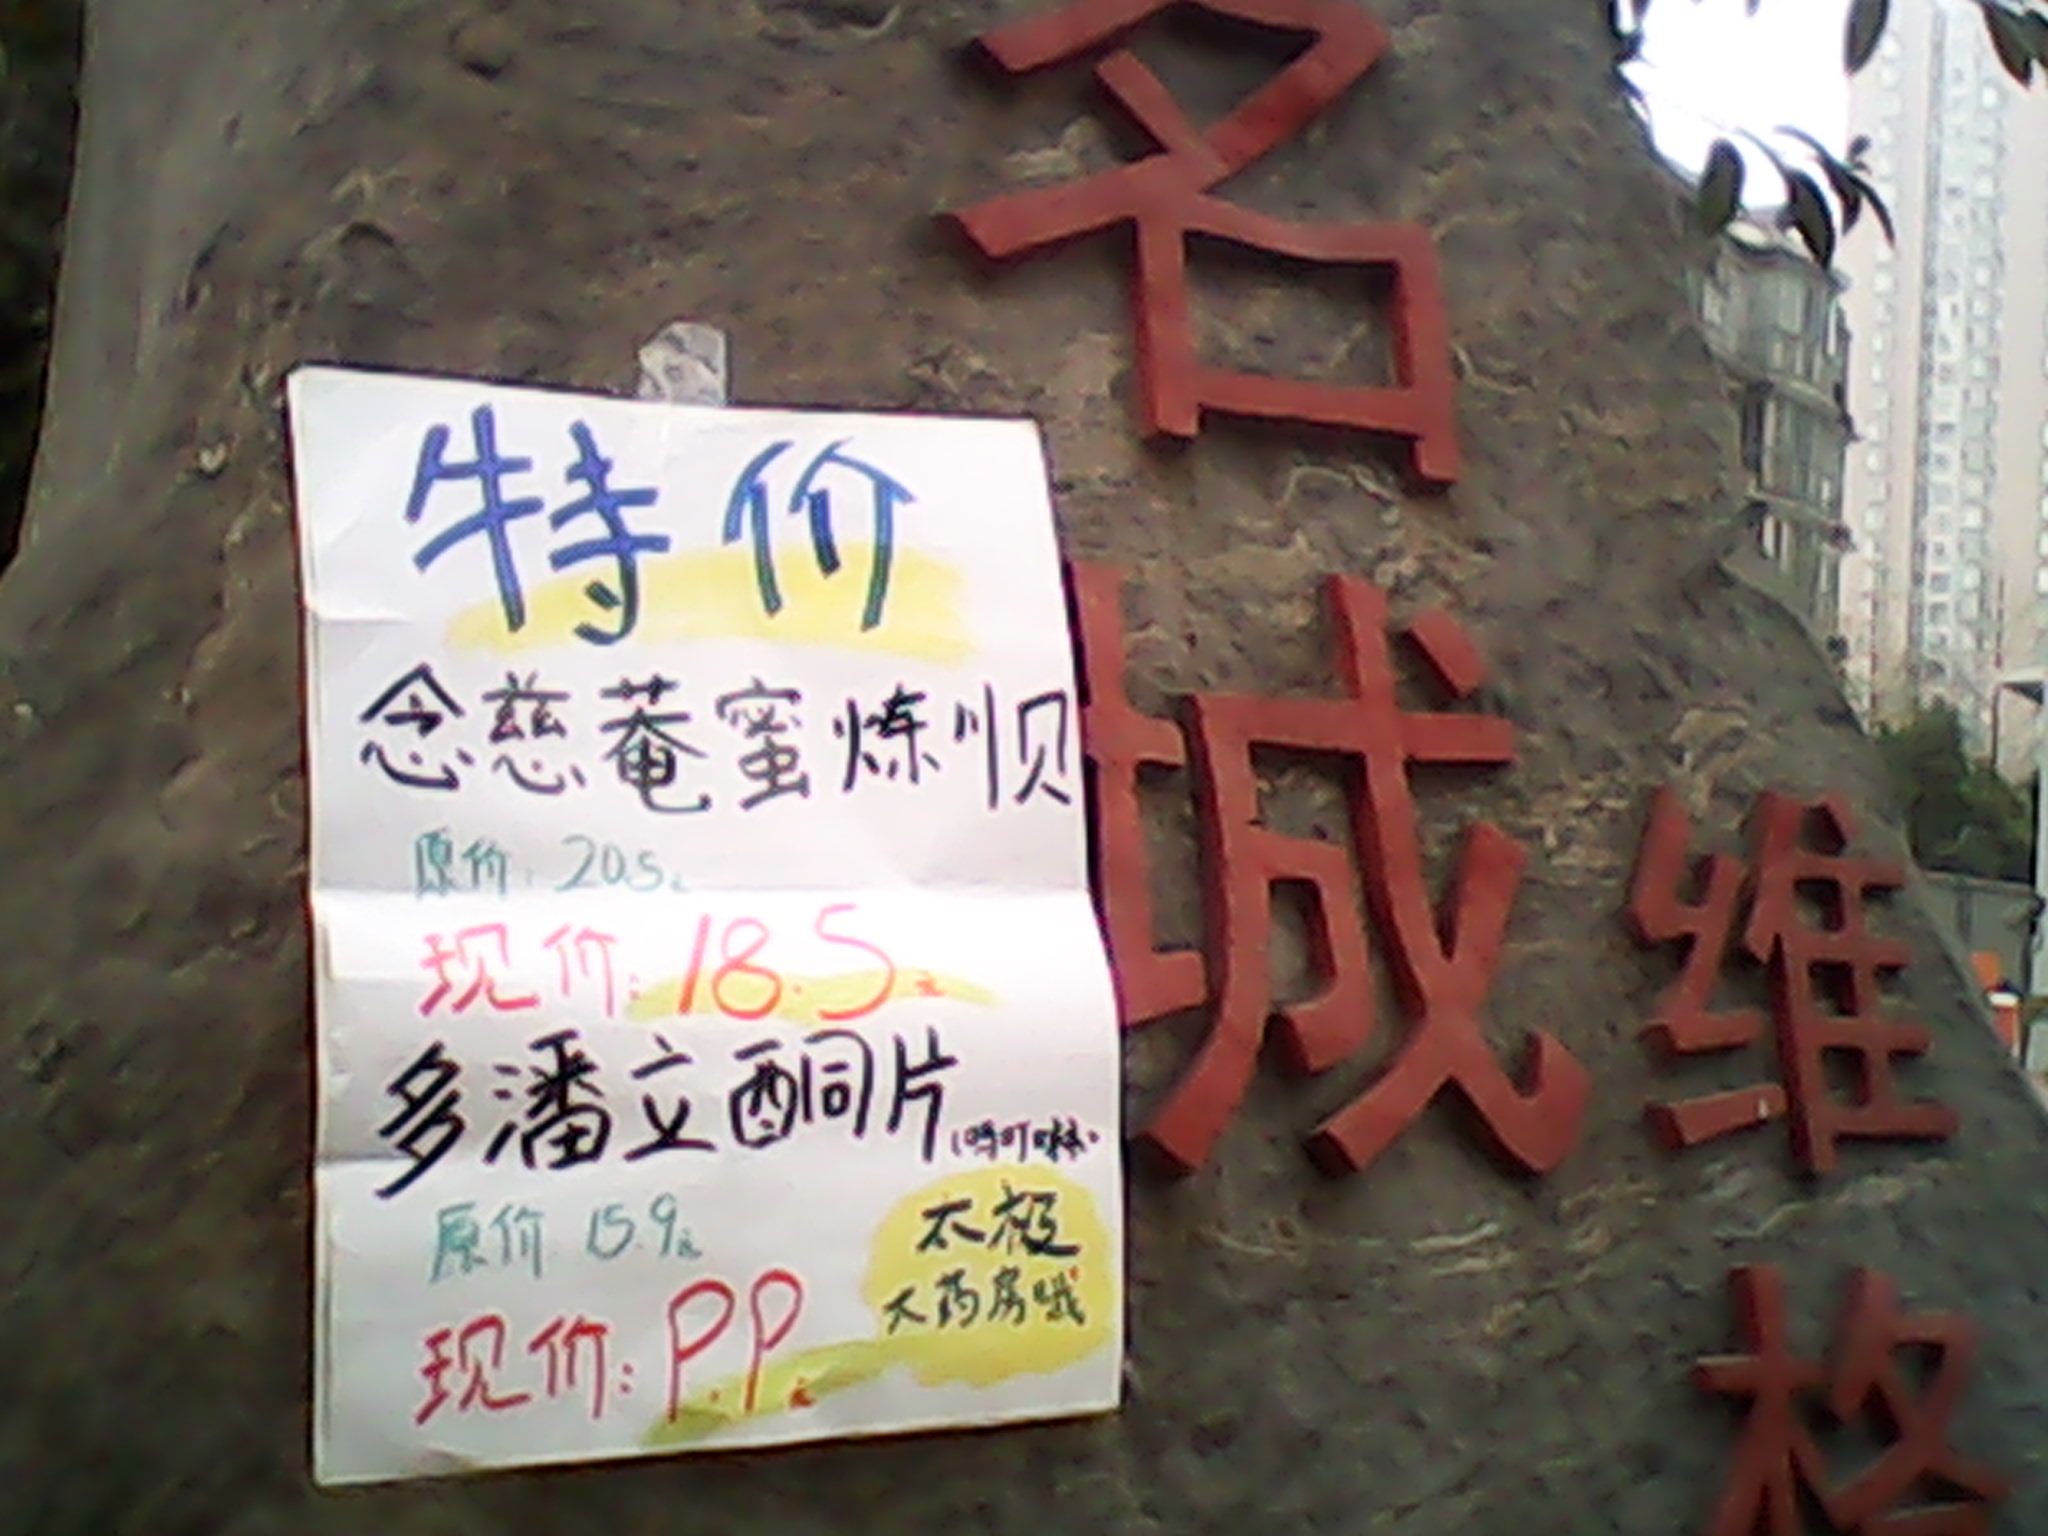 特价
念慈菴蜜炼川贝
原价:20.5元
现价:18.5元
多潘立酮片(吗叮啉)
原价 15.9元
现价:9.9元
太极
大药房哦
名
城
维
格